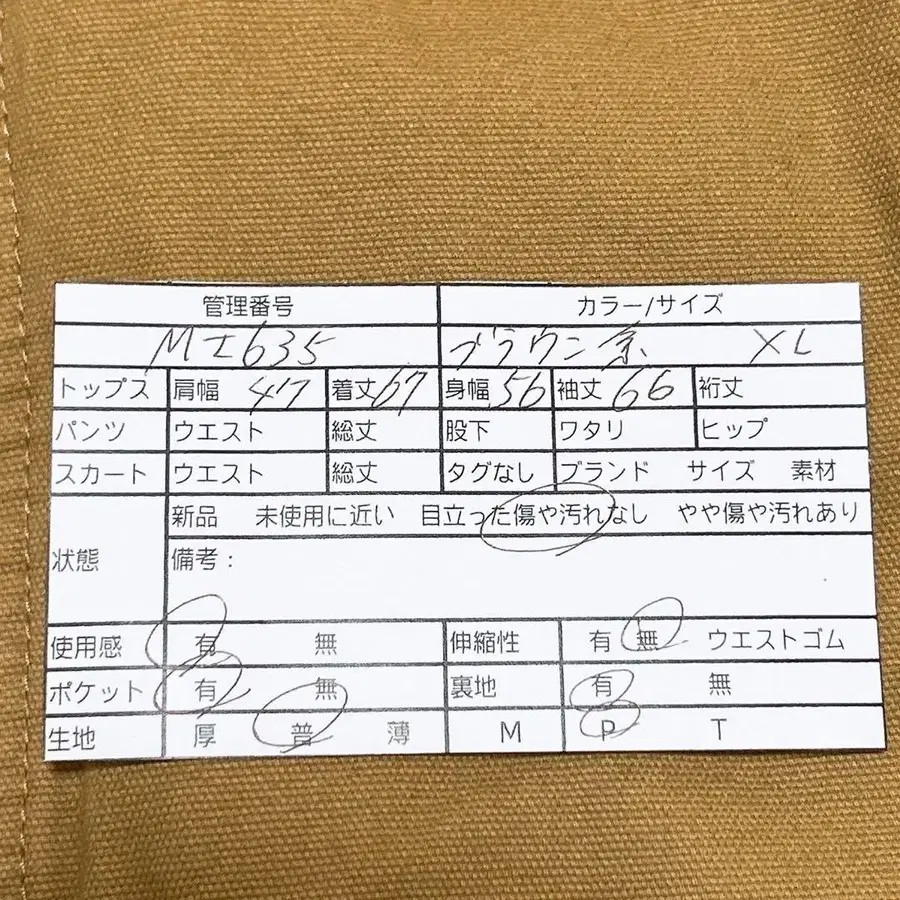 管理番号 カラー/サイズ
MI635 ブラウン系 XL
トップス 肩幅 47 着丈 67 身幅 56 袖丈 66 裄丈
パンツ ウエスト 総丈 股下 ワタリ ヒップ
スカート ウエスト 総丈 タグなし ブランド サイズ 素材
状態 新品 未使用に近い 目立った傷や汚れなし やや傷や汚れあり
備考：
使用感 有 無 伸縮性 有 無 ウエストゴム
ポケット 有 無 裏地 有 無
生地 厚 普 薄 M P T